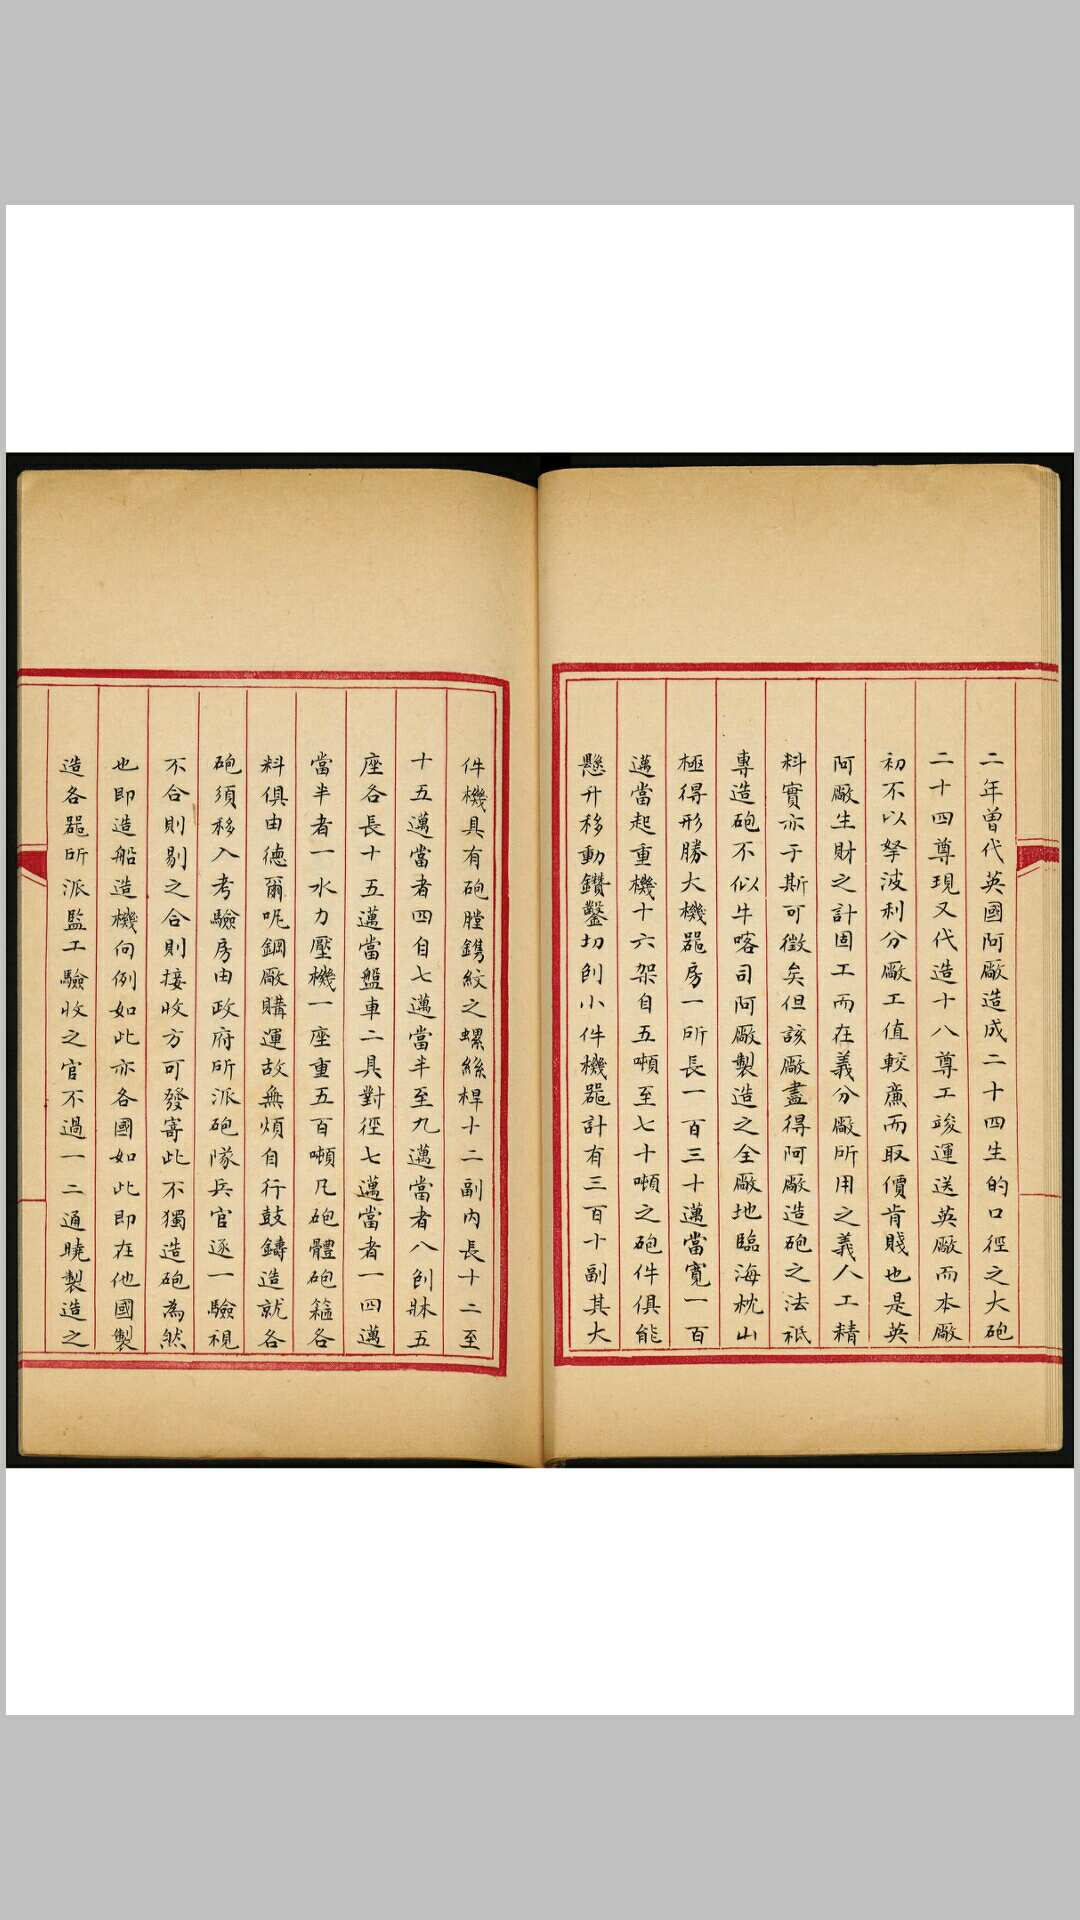 二年曾代英國阿廠造成二十四生的口徑之大砲
二十四尊現又代造十八尊工竣運送英廠而本廠
初不以拏波利分廠工值較廉而取價肯賤也是英
阿廠生財之計固工而在義分廠所用之義人工精
料實亦于斯可徵矣但該廠盡得阿廠造砲之法祗
專造砲不似牛喀司阿廠製造之全廠地臨海枕山
極得形勝大機噐房一所長一百三十邁當寬一百
邁當起重機十六架自五噸至七十噸之砲件俱能
懸升移動鑽鑿切刨小件機噐計有三百十副其大
件機具有砲膛鐫紋之螺絲桿十二副內長十二至
十五邁當者四自七邁當半至九邁當者八刨牀五
座各長十五邁當盤車二具對徑七邁當者一四邁
當半者一水力壓機一座重五百噸凡砲體砲箍各
料俱由德爾呢鋼廠購運故無煩自行鼓鑄造就各
砲須移入考驗房由政府所派砲隊兵官逐一驗視
不合則剔之合則接收方可發寄此不獨造砲為然
也即造船造機向例如此亦各國如此即在他國製
造各噐所派監工驗收之官不過一二通曉製造之